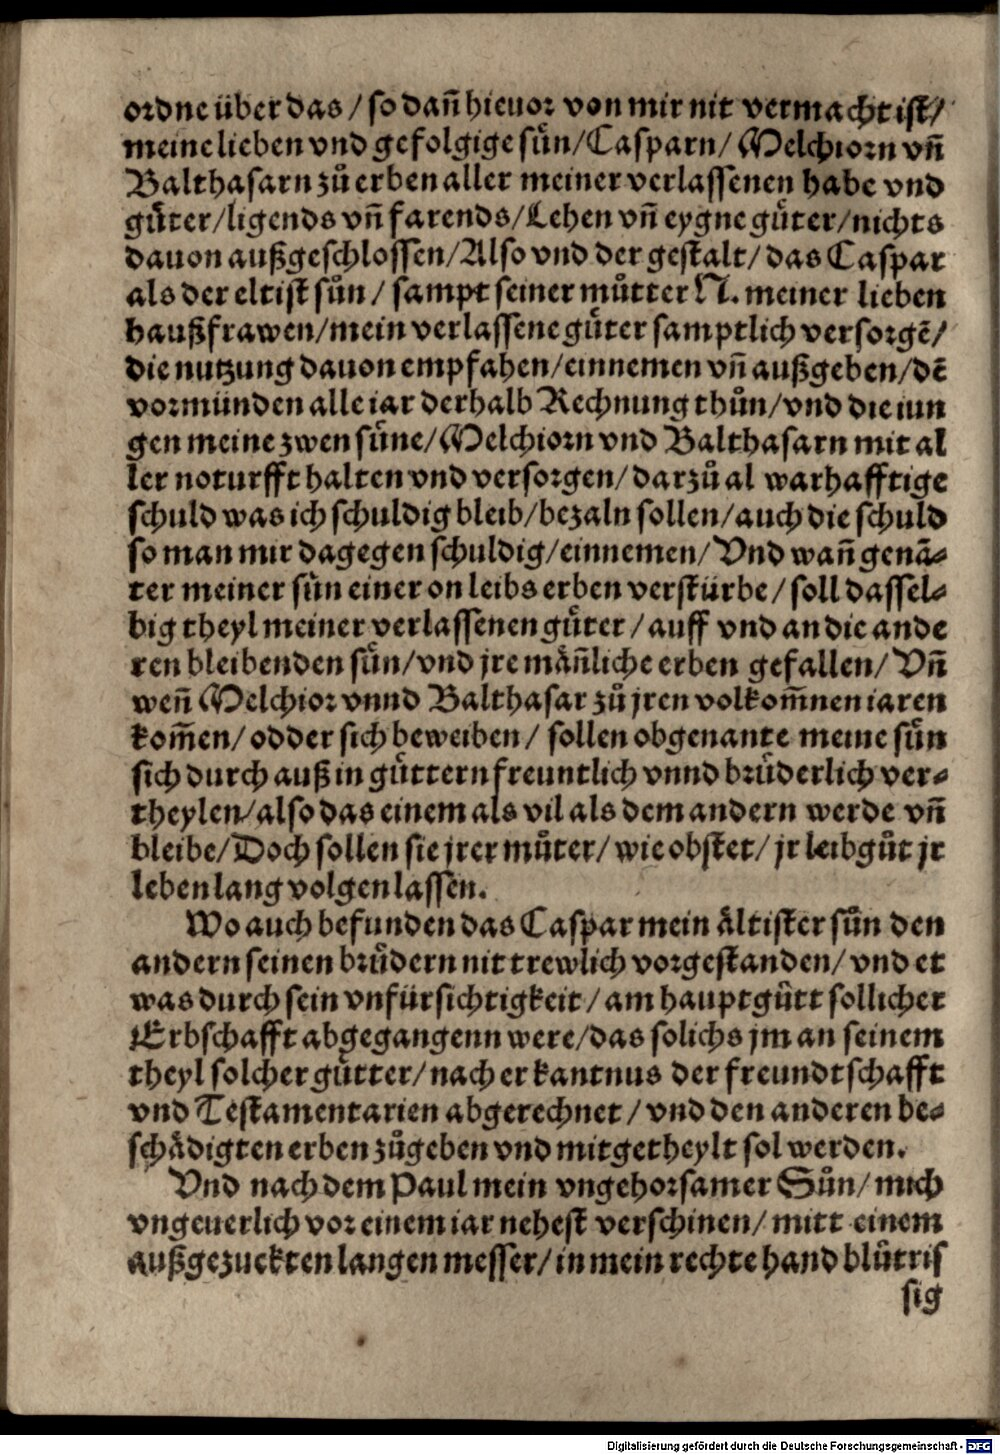 ordne über das / so dañ hieuor von mir nit vermacht ist /
meine lieben vnd gefolgige sün / Casparn / Melchiorn vñ
Balthasarn zů erben aller meiner verlassenen habe vnd
güter / ligends vñ farends / Lehen vñ eygne güter / nichts
dauon außgeschlossen / Also vnd der gestalt / das Caspar
als der eltist sůn / sampt seiner můtter N. meiner lieben
haußfrawen / mein verlassene güter samptlich versorgẽ /
die nutzung dauon empfahen / einnemen vñ außgeben / dẽ
vormünden alle iar derhalb Rechnung thůn / vnd die iun
gen meine zwen süne / Melchiorn vnd Balthasarn mit al
ler noturfft halten vnd versorgen / darzů al warhafftige
schuld was ich schuldig bleib / bezaln sollen / auch die schuld
so man mir dagegen schuldig / einnemen / Vnd wañ genã⸗
ter meiner sün einer on leibs erben verstürbe / soll dassel⸗
big theyl meiner verlassenen güter / auff vnd an die ande
ren bleibenden sün / vnd jre mäñliche erben gefallen / Vñ
weñ Melchior vnnd Balthasar zů jren volkom̃nen iaren
kom̃en / odder sich beweiben / sollen obgenante meine sün
sich durch auß in güttern freuntlich vnnd brüderlich ver⸗
theylen / also das einem als vil als dem andern werde vñ
bleibe / Doch sollen sie jrer můter / wie obstet / jr leibgůt jr
leben lang volgen lassen.
Wo auch befunden das Caspar mein ältister sůn den
andern seinen brüdern nit trewlich vorgestanden / vnd et
was durch sein vnfürsichtigkeit / am hauptgůtt sollicher
Erbschafft abgegangenn were / das solichs jm an seinem
theyl solcher gütter / nach erkantnus der freundtschafft
vnd Testamentarien abgerechnet / vnd den anderen be⸗
schädigten erben zůgeben vnd mitgetheylt sol werden.
Vnd nach dem Paul mein vngehorsamer Sůn / mich
vngeuerlich vor einem iar nehest verschinen / mitt einem
außgezuckten langen messer / in mein rechte hand blůtris
sig
Digitalisierung gefördert durch die Deutsche Forschungsgemeinschaft - DFG